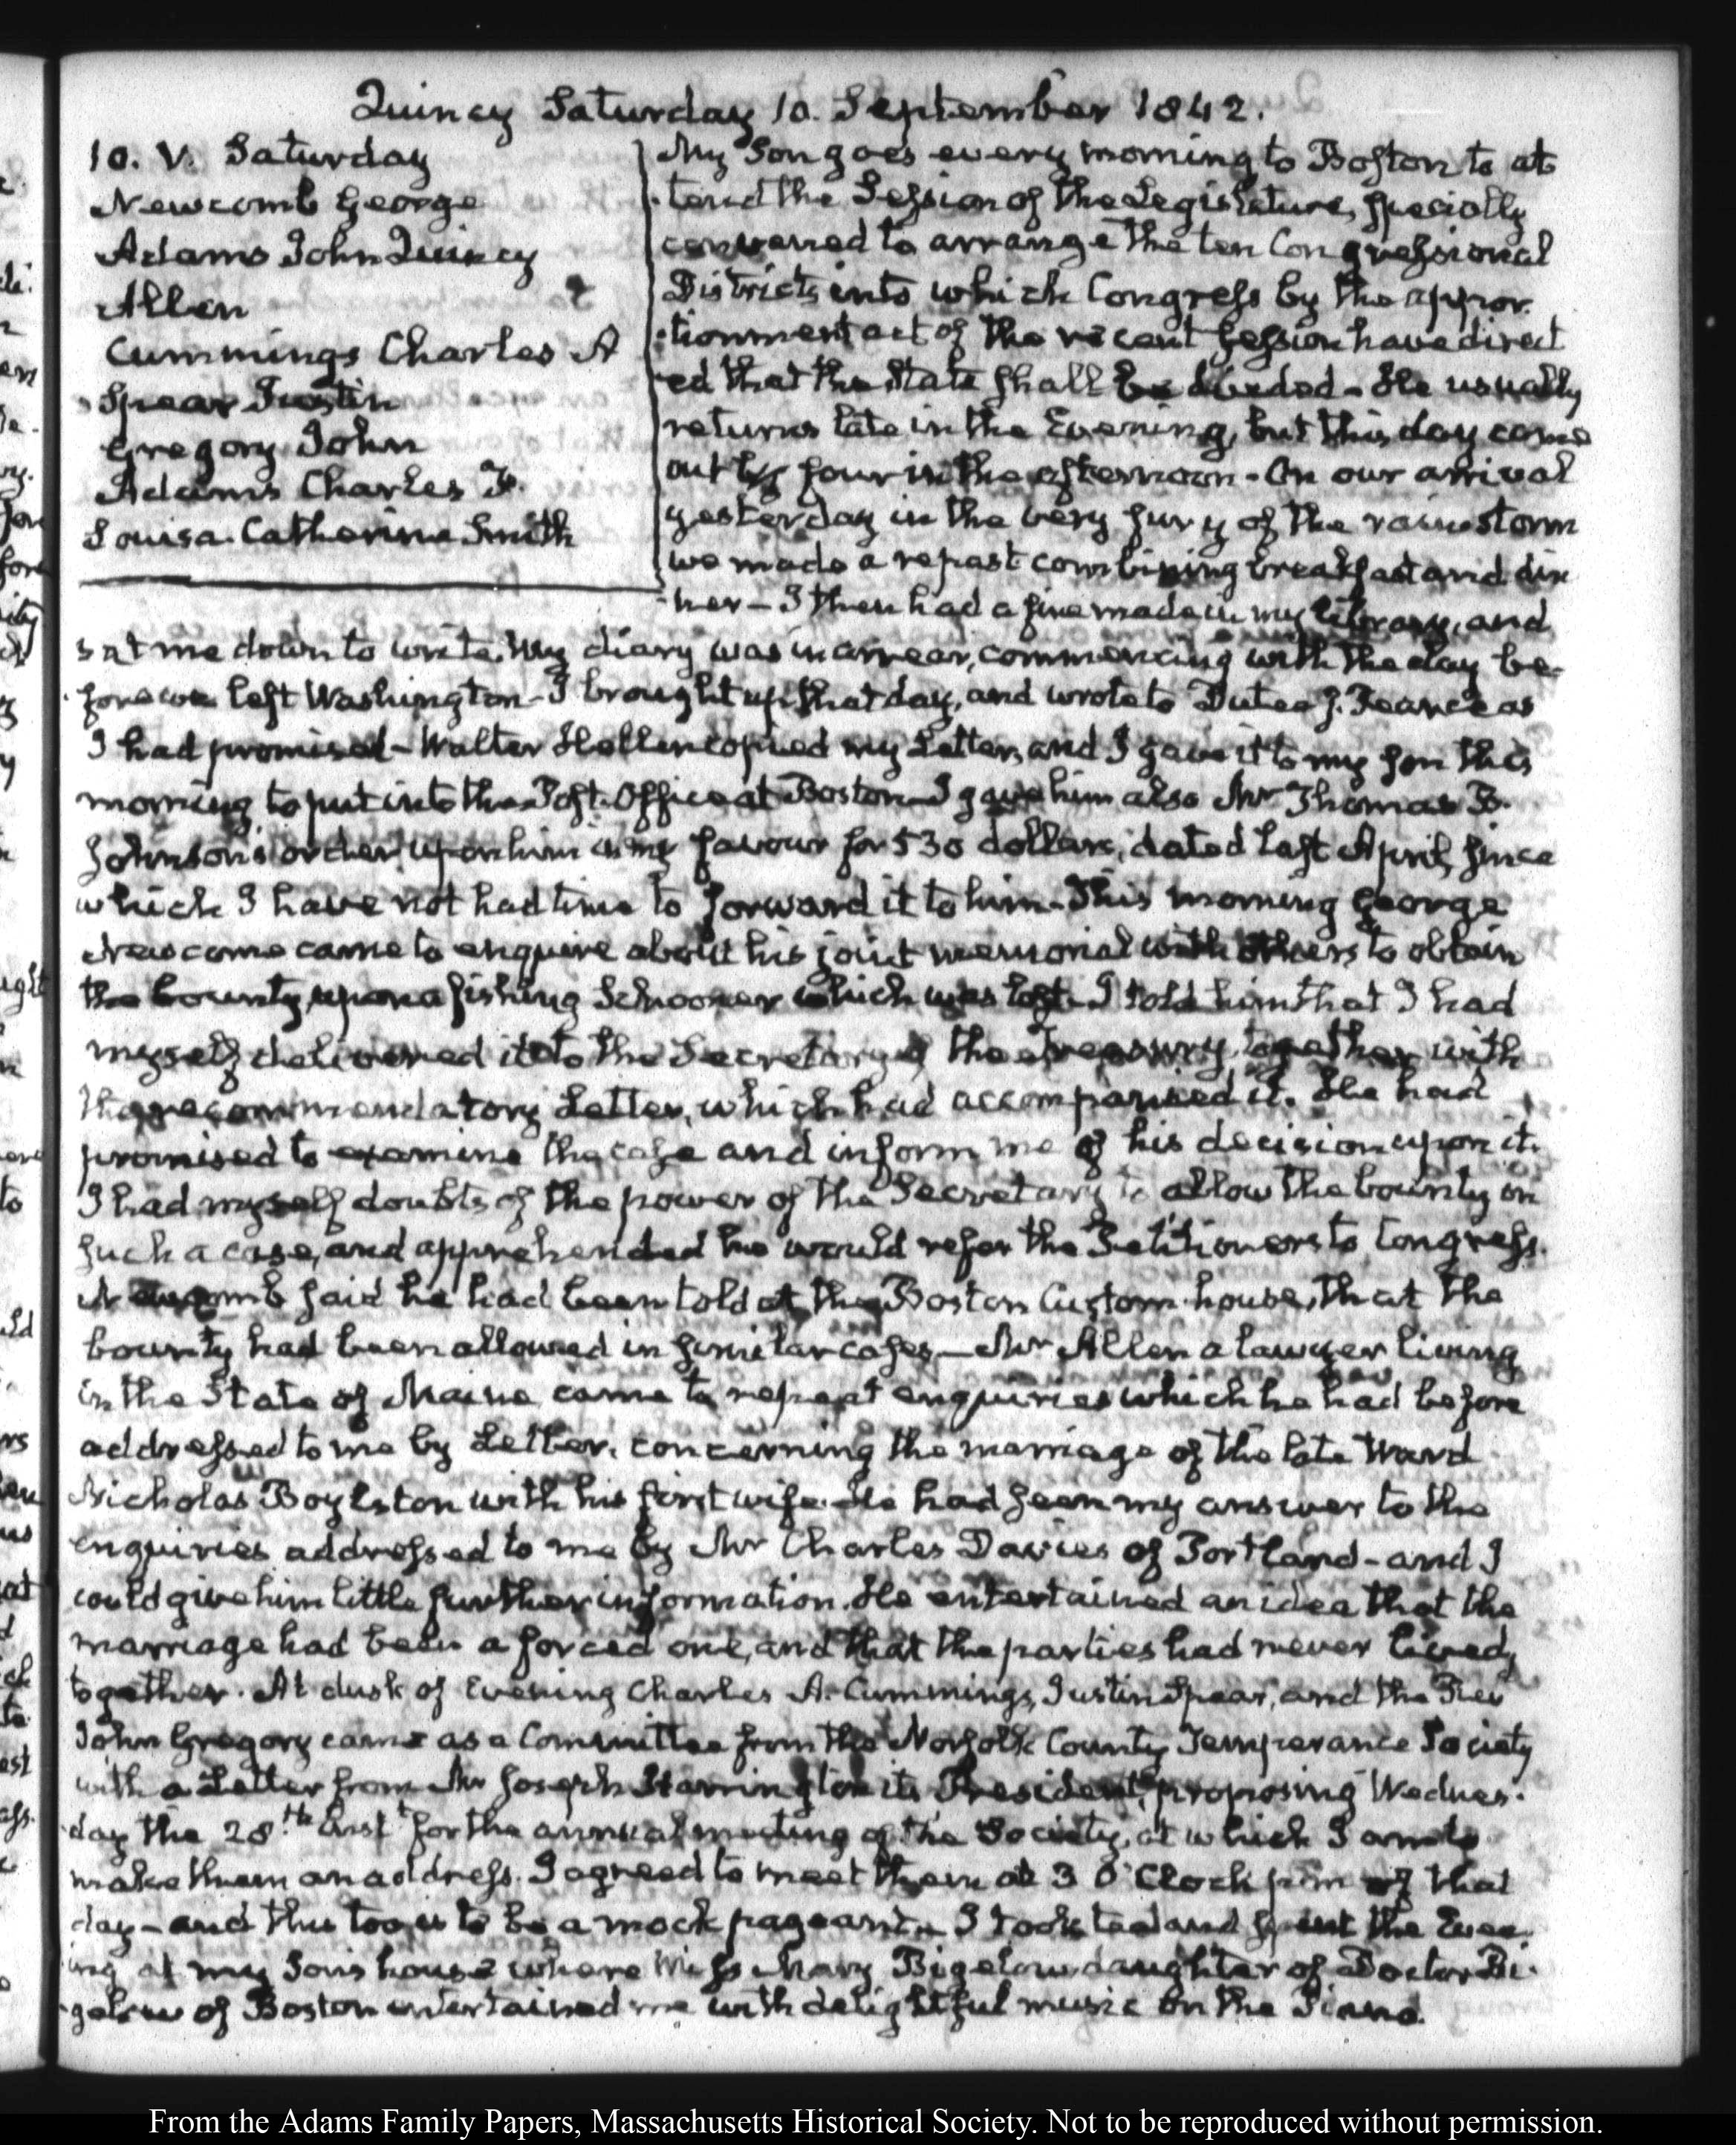 Quincy Saturday 10. September 1842.
10. V. Saturday
Newcomb George
Adams John Quincy
Allen
Cummings Charles A
Spear Justin
Gregory John
Adams Charles F.
Louisa Catherine Smith
My Son goes every morning to Boston to at
tend the Session of the Legislature, specially
convened to arrange the ten Congressional
Districts into which Congress by the appor-
tionment act of the recent Session have direct
ed that the State shall be divided - He usually
returns late in the Evening, but this day came
out by four in the afternoon - On our arrival
yesterday in the very fury of the rain storm
we made a repast combining breakfast and din
ner - I then had a fire made in my library, and
sat me down to write. My diary was in arrear, commencing with the day be-
fore we left Washington - I brought up that day, and wrote to Dutee J. Pearce as
I had promised - Walter Hellen copied my Letter, and I gave it to my Son this
morning to put into the Post-Office at Boston - I gave him also Mr Thomas B.
Johnson's order upon him in my favour for 530 dollars, dated last April, since
which I have not had time to forward it to him - This morning George
Newcome came to enquire about his joint memorial with others to obtain
the bounty upon a fishing Schooner which was lost. I told him that I had
myself delivered it to the Secretary of the Treasury, together with
the recommendatory Letter, which had accompanied it. He had
promised to examine the case and inform me of his decision upon it.
I had myself doubts of the power of the Secretary to allow the bounty in
such a case, and apprehended he would refer the Petitioners to Congress.
Newcomb said he had been told at the Boston Custom-house, that the
bounty had been allowed in similar cases - Mr Allen a lawyer living
in the State of Maine came to repeat enquiries which he had before
addressed to me by Letter, concerning the marriage of the late Ward
Nicholas Boylston with his first wife. He had seen my answer to the
enquiries addressed to me by Mr Charles Davies of Portland - and I
could give him little further information. He entertained an idea that the
marriage had been a forced one, and that the parties had never lived
together. At dusk of Evening Charles A. Cummings, Justin Spear, and the Rev
John Gregory came as a Committee from the Norfolk County Temperance Society
with a Letter from Mr Joseph Harrington its President, proposing Wednes-
day the 28th inst for the annual meeting of the Society, at which I am to
make them an address. I agreed to meet them at 3 O'Clock p.m. of that
day - and this too is to be a mock pageant. I took tea and spent the Even-
ing at my Son's house where Miss Mary Bigelow daughter of Doctor Bi-
gelow of Boston entertained me with delightful music on the Piano.
From the Adams Family Papers, Massachusetts Historical Society. Not to be reproduced without permission.